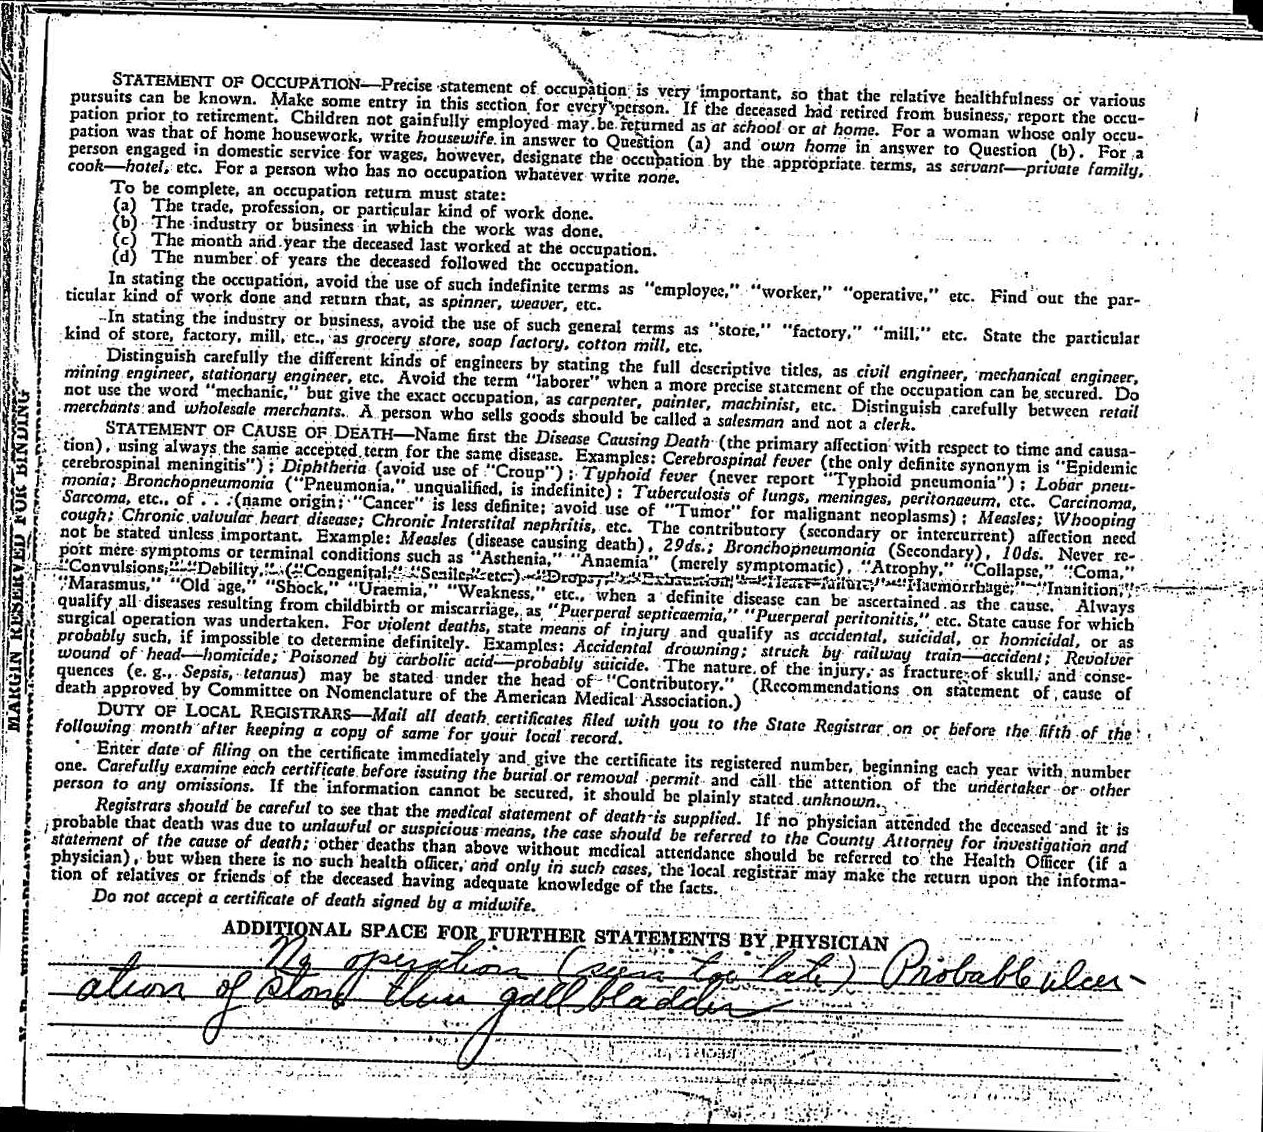 STATEMENT OF OCCUPATION—Precise statement of occupation is very important, so that the relative healthfulness or various
pursuits can be known. Make some entry in this section for every person. If the deceased had retired from business, report the occu-
pation prior to retirement. Children not gainfully employed may be returned as at school or at home. For a woman whose only occu-
pation was that of home housework, write housewife in answer to Question (a) and own home in answer to Question (b). For a
person engaged in domestic service for wages, however, designate the occupation by the appropriate terms, as servant—private family,
cook—hotel, etc. For a person who has no occupation whatever write none.
To be complete, an occupation return must state:
(a) The trade, profession, or particular kind of work done.
(b) The industry or business in which the work was done.
(c) The month and year the deceased last worked at the occupation.
(d) The number of years the deceased followed the occupation.
In stating the occupation, avoid the use of such indefinite terms as "employee," "worker," "operative," etc. Find out the par-
ticular kind of work done and return that, as spinner, weaver, etc.
In stating the industry or business, avoid the use of such general terms as "store," "factory," "mill," etc. State the particular
kind of store, factory, mill, etc., as grocery store, soap factory, cotton mill, etc.
Distinguish carefully the different kinds of engineers by stating the full descriptive titles, as civil engineer, mechanical engineer,
mining engineer, stationary engineer, etc. Avoid the term "laborer" when a more precise statement of the occupation can be secured. Do
not use the word "mechanic," but give the exact occupation, as carpenter, painter, machinist, etc. Distinguish carefully between retail
merchants and wholesale merchants. A person who sells goods should be called a salesman and not a clerk.
STATEMENT OF CAUSE OF DEATH—Name first the Disease Causing Death (the primary affection with respect to time and causa-
tion), using always the same accepted term for the same disease. Examples: Cerebrospinal fever (the only definite synonym is "Epidemic
cerebrospinal meningitis"); Diphtheria (avoid use of "Croup"); Typhoid fever (never report "Typhoid pneumonia"); Lobar pneu-
monia; Bronchopneumonia ("Pneumonia," unqualified, is indefinite); Tuberculosis of lungs, meninges, peritonaeum, etc. Carcinoma,
Sarcoma, etc., of . . . (name origin; "Cancer" is less definite; avoid use of "Tumor" for malignant neoplasms); Measles; Whooping
cough; Chronic valvular heart disease; Chronic Interstital nephritis, etc. The contributory (secondary or intercurrent) affection need
not be stated unless important. Example: Measles (disease causing death), 29ds.; Bronchopneumonia (Secondary), 10ds. Never re-
port mere symptoms or terminal conditions such as "Asthenia," "Anaemia" (merely symptomatic), "Atrophy," "Collapse," "Coma,"
"Convulsions," "Debility," ("Congenital," "Senile," etc). "Dropsy," "Exhaustion," "Heart failure," "Haemorrhage," "Inanition,"
"Marasmus," "Old age," "Shock," "Uraemia," "Weakness," etc., when a definite disease can be ascertained as the cause. Always
qualify all diseases resulting from childbirth or miscarriage, as "Puerperal septicaemia," "Puerperal peritonitis," etc. State cause for which
surgical operation was undertaken. For violent deaths, state means of injury and qualify as accidental, suicidal, or homicidal, or as
probably such, if impossible to determine definitely. Examples: Accidental drowning; struck by railway train—accident; Revolver
wound of head—homicide; Poisoned by carbolic acid—probably suicide. The nature of the injury, as fracture of skull, and conse-
quences (e. g., Sepsis, tetanus) may be stated under the head of "Contributory." (Recommendations on statement of cause of
death approved by Committee on Nomenclature of the American Medical Association.)
DUTY OF LOCAL REGISTRARS—Mail all death certificates filed with you to the State Registrar on or before the fifth of the
following month after keeping a copy of same for your local record.
Enter date of filing on the certificate immediately and give the certificate its registered number, beginning each year with number
one. Carefully examine each certificate before issuing the burial or removal permit and call the attention of the undertaker or other
person to any omissions. If the information cannot be secured, it should be plainly stated unknown.
Registrars should be careful to see that the medical statement of death is supplied. If no physician attended the deceased and it is
probable that death was due to unlawful or suspicious means, the case should be referred to the County Attorney for investigation and
statement of the cause of death; other deaths than above without medical attendance should be referred to the Health Officer (if a
physician), but when there is no such health officer, and only in such cases, the local registrar may make the return upon the informa-
tion of relatives or friends of the deceased having adequate knowledge of the facts.
Do not accept a certificate of death signed by a midwife.
ADDITIONAL SPACE FOR FURTHER STATEMENTS BY PHYSICIAN
No operation (seen too late) Probable ulcer-
ation of stone thru gall bladder
MARGIN RESERVED FOR BINDING